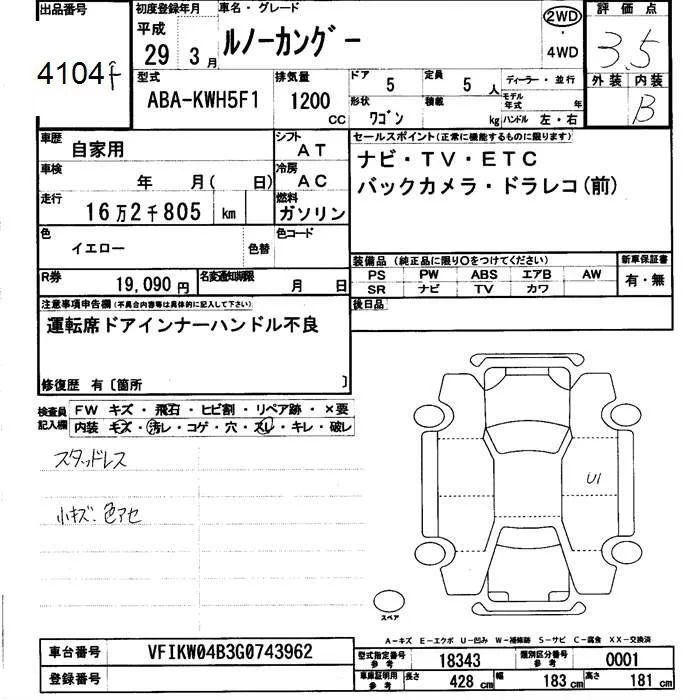 出品番号
4104
初度登録年月
平成
29 3月
車名・グレード
ルノーカングー
2WD
・
4WD
評価点
3.5
型式
ABA-KWH5F1
排気量
1200
cc
ドア
5
定員
5人
ディーラー・並行
モデル年式 年
形状
ワゴン
積載
kg
ハンドル 左・右
外装 内装
B
車歴
自家用
シフト
AT
セールスポイント(正常に機能するものに限ります)
ナビ・TV・ETC
バックカメラ・ドラレコ(前)
車検
年 月( 日)
冷房
AC
走行
16万2千805 km
燃料
ガソリン
色
イエロー
色替
色コード
装備品(純正品に限り○をつけてください)
PS PW ABS エアB AW
SR ナビ TV カワ
新車保証書
有・無
R券
19,090円
名変通知期限
月 日
後日品
注意事項申告欄(不具合内容等は具体的に記入して下さい)
運転席ドアインナーハンドル不良
修復歴 有〔箇所 〕
検査員記入欄
FW キズ・飛石・ヒビ割・リペア跡・×要
内装 キズ・汚レ・コゲ・穴・スレ・キレ・破レ
スタッドレス
小キズ.色アセ
U1
スペア
A-キズ E-エクボ U-凹み W-補修跡 S-サビ C-腐食 XX-交換済
車台番号
VF1KW04B3G0743962
登録番号
型式指定番号
参考
18343
類別区分番号
参考
0001
車庫証明用
参考
長さ
428 cm
幅
183 cm
高さ
181 cm